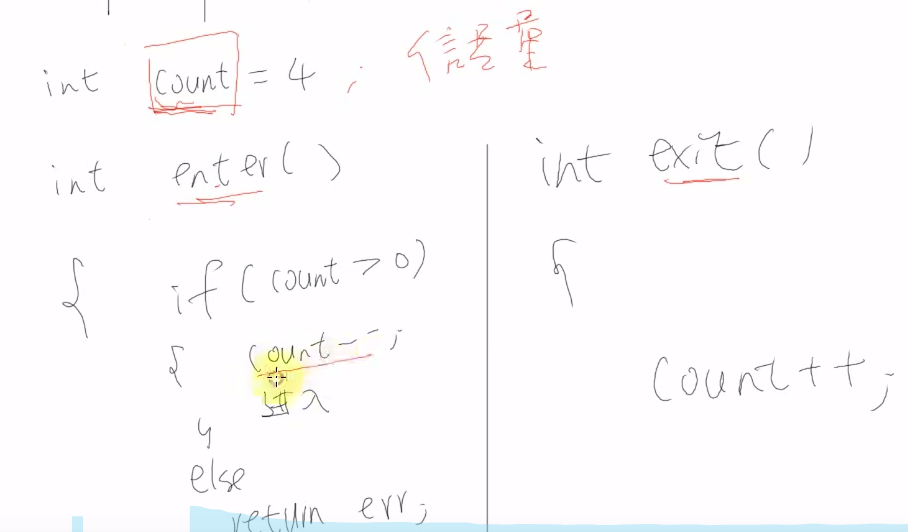 int count = 4 ; 信号量
int enter()
{ if (count > 0)
{ count--;
进入
}
else
return err;
int exit()
{
count++;